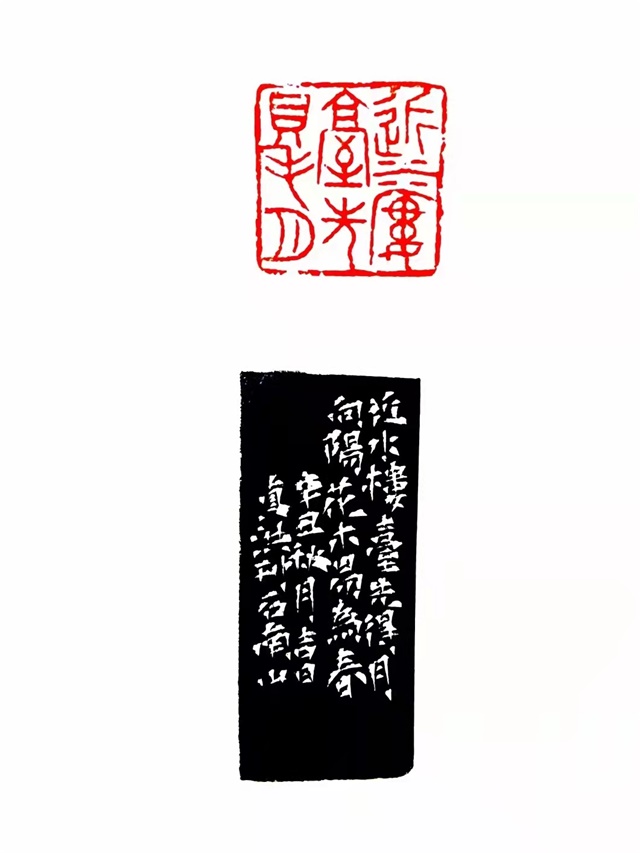 近水樓
臺先
得月
近水樓臺先得月
向陽花木易為春
辛丑秋月吉日
南山